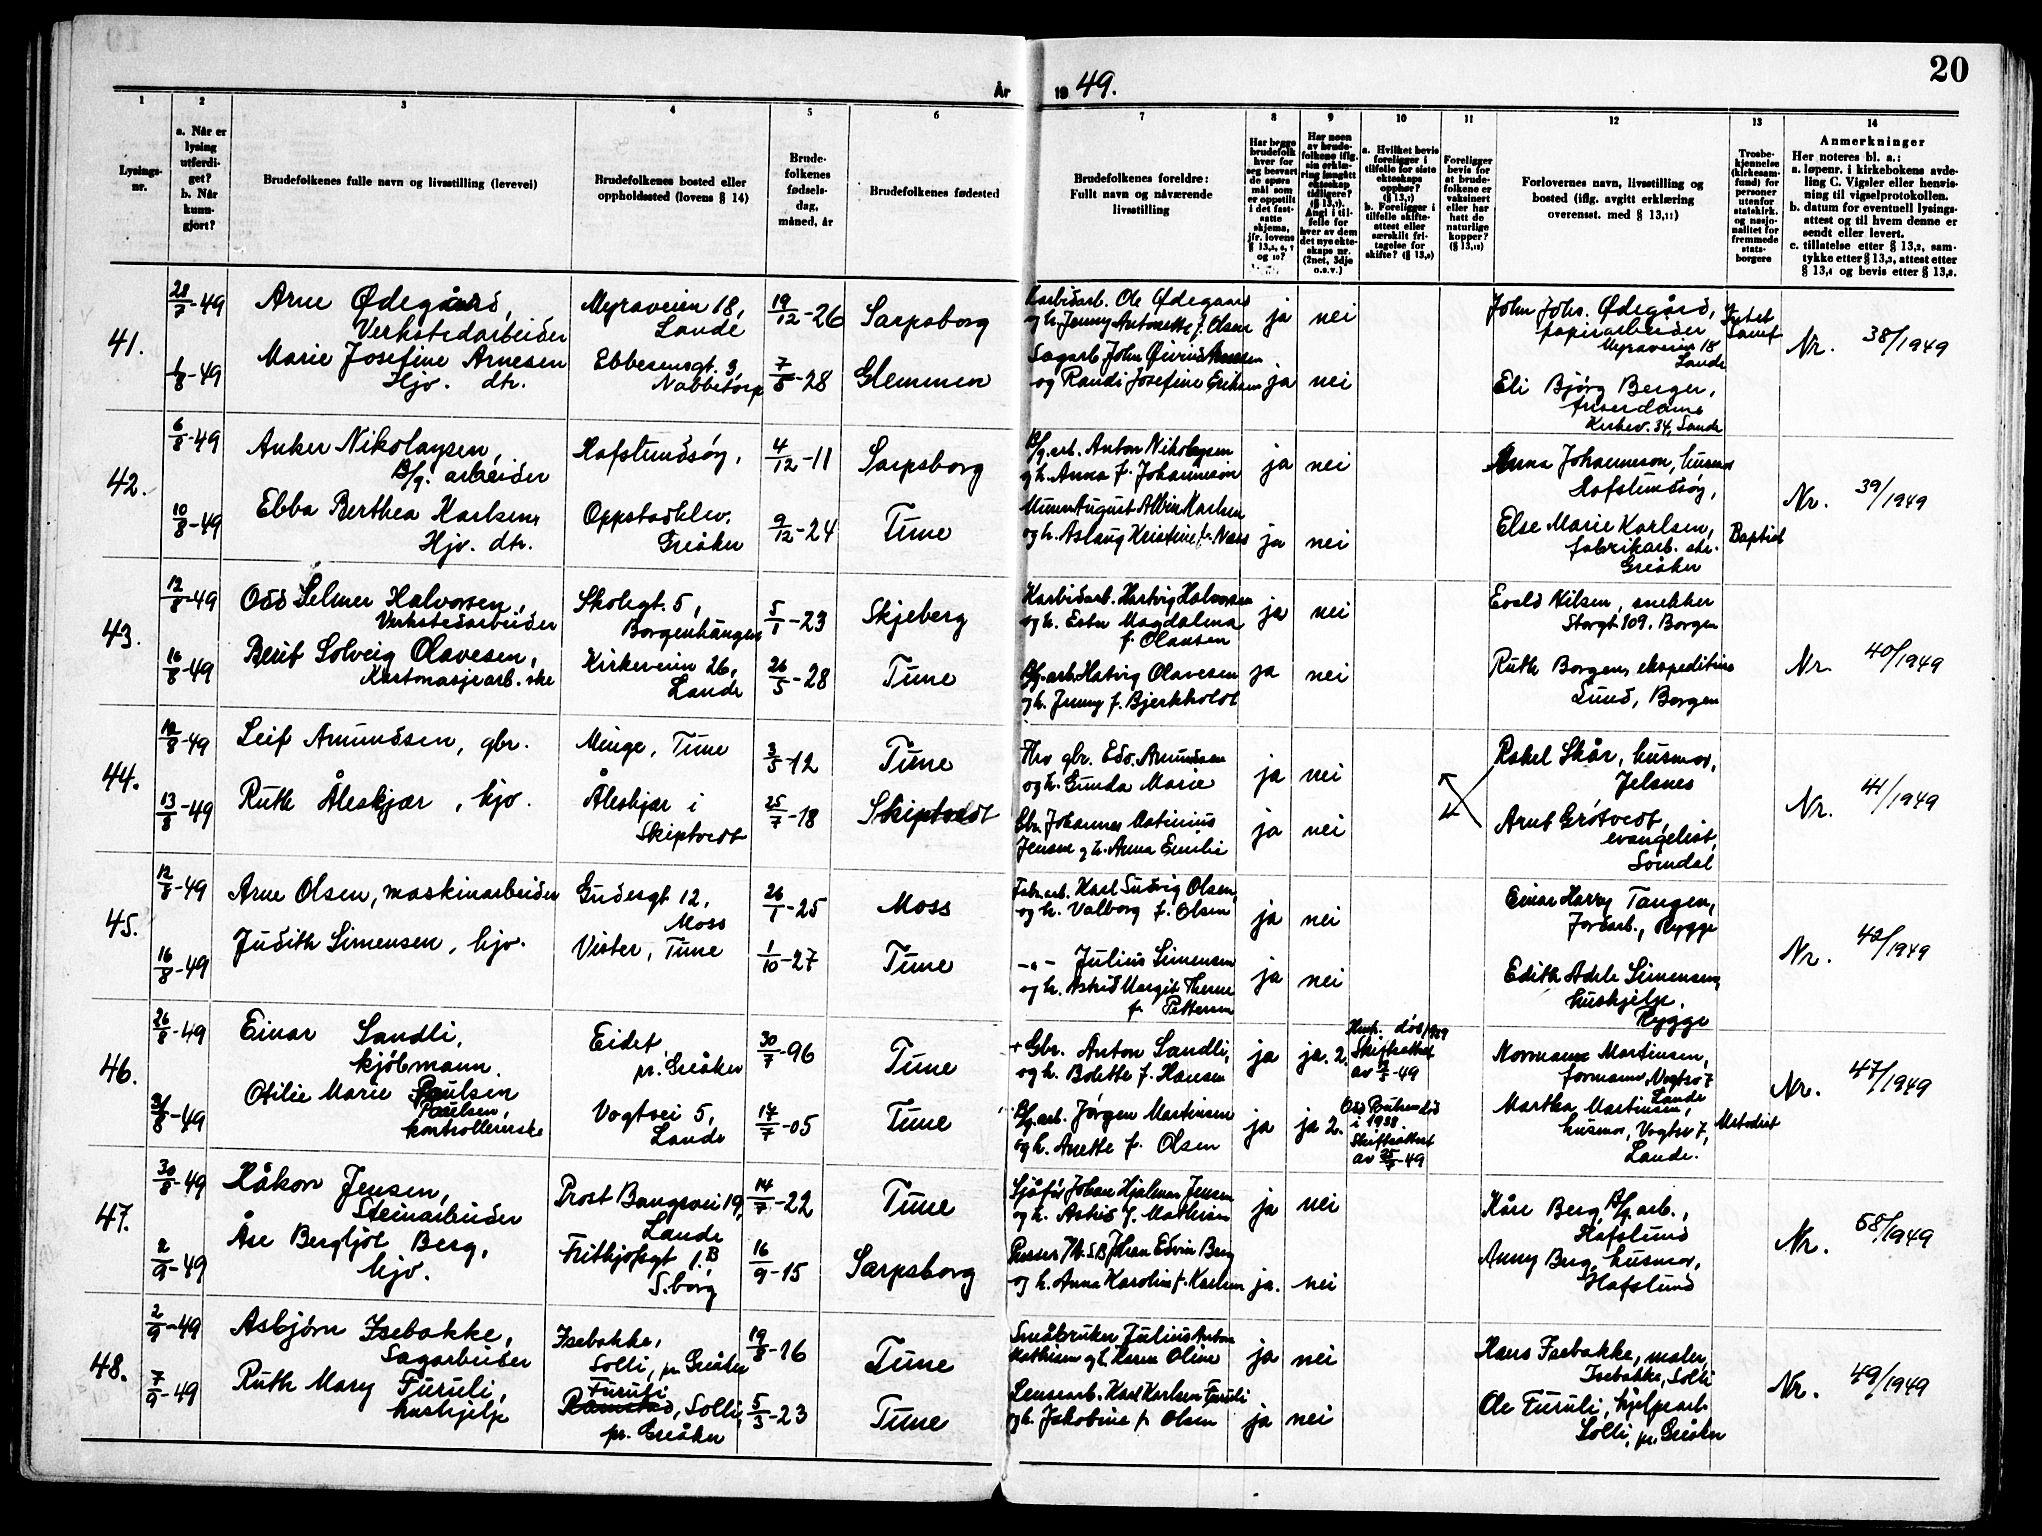 20
År 1949.
1
2
3
4
5
6
7
8
9
10
11
12
13
14
Lysings-
nr.
a. Når er
lysing
utferdi-
get?
b. Når
kunn-
gjort?
Brudefolkenes fulle navn og livsstilling (levevei)
Brudefolkenes bosted eller
oppholdssted (lovens § 14)
Brude-
folkenes
fødsels-
dag,
måned, år
Brudefolkenes fødested
Brudefolkenes foreldre:
Fullt navn og nåværende
livsstilling
Har begge
brudefolk
hver for
seg besvart
de spørs-
mål som
er oppstilt
i det fast-
satte
skjema,
jfr. lovens
Har noen
av brude-
folkene iflg.
sin erklæ-
ring inngått
ekteskap
tidligere?
Angi i til-
felle for
hver av dem
det nye ekte-
skaps nr.
(2net, 3dje
o.s.v.)
a. Hvilket bevis
foreligger i
tilfelle for siste
ekteskaps
opphør?
b. Foreligger i
tilfelle skifte-
attest eller
særskilt fri-
tagelse for
skifte? (§ 13,9)
Foreligger
bevis for
at brude-
folkene er
vaksinert
eller har
hatt de
naturlige
kopper?
Forlovernes navn, livsstilling og
bosted (iflg. avgitt erklæring
overensst. med § 13,11)
Trosbe-
kjennelse
(kirkesam-
fund) for
personer
utenfor
statskirk.
og nasjo-
nalitet for
fremmede
stats-
borgere
Anmerkninger
Her noteres bl. a.:
a. løpenr. i kirkebokens avde-
ling C. Vigsler eller henvis-
ning til vigselprotokollen.
b. datum for eventuell lysings-
attest og til hvem denne er
sendt eller levert.
c. tillatelse etter § 13,2, sam-
tykke etter § 13,3, attest etter
§ 13,4 og bevis etter § 13,8.
41.
28/7-49 Arne Ødegård,
Verkstedarbeider
Myraveien 18,
Lande
19/12-26 Sarpsborg
Karbidarb. Ole Ødegaard
og h. Jenny Antonette f. Olsen
ja nei
John Johs. Ødegård,
papirarbeider
Myraveien 18
Lande
Nr. 38/1949
6/8-49 Marie Josefine Arnesen
Hjv. dtr.
Ebbesensgt. 3,
Nabbetorp
7/5-28 Glemmen
Sagarb John Øivind Arnesen
og Randi Josefine Eriksen
ja nei
Eli Bjørg Berger,
Kirkev. 34, Lande
42.
6/8-49 Anker Nikolaysen,
B/g. arbeider
Hafslundsøy,
4/12-11 Sarpsborg
B/g. arb. Anton Nikolaysen
og h. Anna f. Johannesen
ja nei
Anna Johannesen, husmor
Hafslundsøy,
Nr. 39/1949
10/8-49 Ebba Berthea Karlsen,
Hjv. dtr.
Oppstadklev.
Greåker
9/12-24 Tune
Murer August Albin Karlsen
og h. Aslaug Kristine f. Næss
ja nei
Else Marie Karlsen,
fabrikarb. ske.
Greåker
Baptist
43.
12/8-49 Odd Selmer Halvorsen,
Verkstedarbeider
Skolegt. 5,
Borgenhaugen
5/1-23 Skjeberg
Karbidarb. Hartvig Halvorsen
og h. Ester Magdalena
f. Olaussen
ja nei
Evald Nilsen, snekker
Storgt 109. Borgen
Nr. 40/1949
16/8-49 Berit Solveig Olavesen,
Kartonasjearb. ske
Kirkeveien 26,
Lande
26/5-28 Tune
B/g. arb. Hatvig Olavesen
og h. Jenny f. Bjerkholdt
ja nei
Ruth Borgen, ekspeditrise
Lund, Borgen
44.
12/8-49 Leif Amundsen, gbr.
Minge, Tune
3/5-12 Tune
Fhv gbr. Edv. Amundsen
og h. Gunda Marie
ja nei
Rakel Skår, husmor,
Jelsnes
Nr. 41/1949
13/8-49 Ruth Åleskjær, hjv.
Åleskjær i
Skiptvedt
25/7-18 Skiptvedt
Gbr. Johannes Antinius
Jensen og h. Anna Emilie
ja nei
Arnt Grøtvedt,
evangelist,
45.
12/8-49 Arne Olsen, maskinarbeider
Gudesgt 12,
Moss
26/1-25 Moss
Fabr. arb. Karl Ludvig Olsen,
og h. Valborg f. Olsen
ja nei
Einar Harry Tangen,
Jordarb., Rygge
Nr. 42/1949
16/8-49 Judith Simensen, hjv.
Vister, Tune
1/10-27 Tune
-"- Julius Simensen
og h. Astrid Margit Therese
f. Pettersen
ja nei
Edith Adele Simensen,
hushjelp,
Rygge
46.
26/8-49 Einar Sandli,
kjøbmann.
Eidet
pr. Greåker
30/7-96 Tune
+ Gbr. Anton Sandli,
og h. Bolette f. Hansen
ja ja. 2.
Skifteattest
Normann Martinsen,
formann, Vogtsv 7
Lande
Nr. 47/1949
31/8-49 Otilie Marie Paulsen
Paulsen,
kontrollørske
Vogtsvei 5,
Lande
17/7-05 Tune
B/g. arb. Jørgen Martinsen
og h. Anette f. Olsen
ja ja 2.
i 1938.
Skifteattest
av 25/7-49
Martha Martinsen,
husmor, Vogtsv 7,
Lande.
Metodist
47.
30/8-49 Håkon Jensen,
Steinarbeider
Prost Bangsvei 19,
Lande
14/7-22 Tune
Sjåfør Johan Hjalmar Jensen
og h. Astrid f. Mathisen
ja nei
Kåre Berg, B/g. arb.,
Hafslund
Nr. 58/1949
2/9-49 Åse Bergljot Berg,
hjv.
Frithjofsgt 1.B
S.borg
16/9-15 Sarpsborg
Pusser N.S.B Johan Edvin Berg
og h. Anna Karoline f. Karlsen
ja. nei
Anny Berg, husmor,
Hafslund
48.
2/9-49 Asbjørn Isebakke,
Sagarbeider
Isebakke,
Solli, pr. Greåker
19/8-16 Tune
Småbruker Julius Anton
Mathisen og h. Karen Oline
ja nei
Hans Isebakke, maler,
Isebakke, Solli
Nr. 49/1949
7/9-49 Ruth Mary Furuli,
hushjelp
Furuli
Ramstad, Solli,
pr. Greåker
5/3-23 Tune
Lensearb. Karl Karlsen Furuli
og h. Jakobine f. Olsen
ja nei
Ole Furuli, hjelpearb.
Solli, pr. Greåker